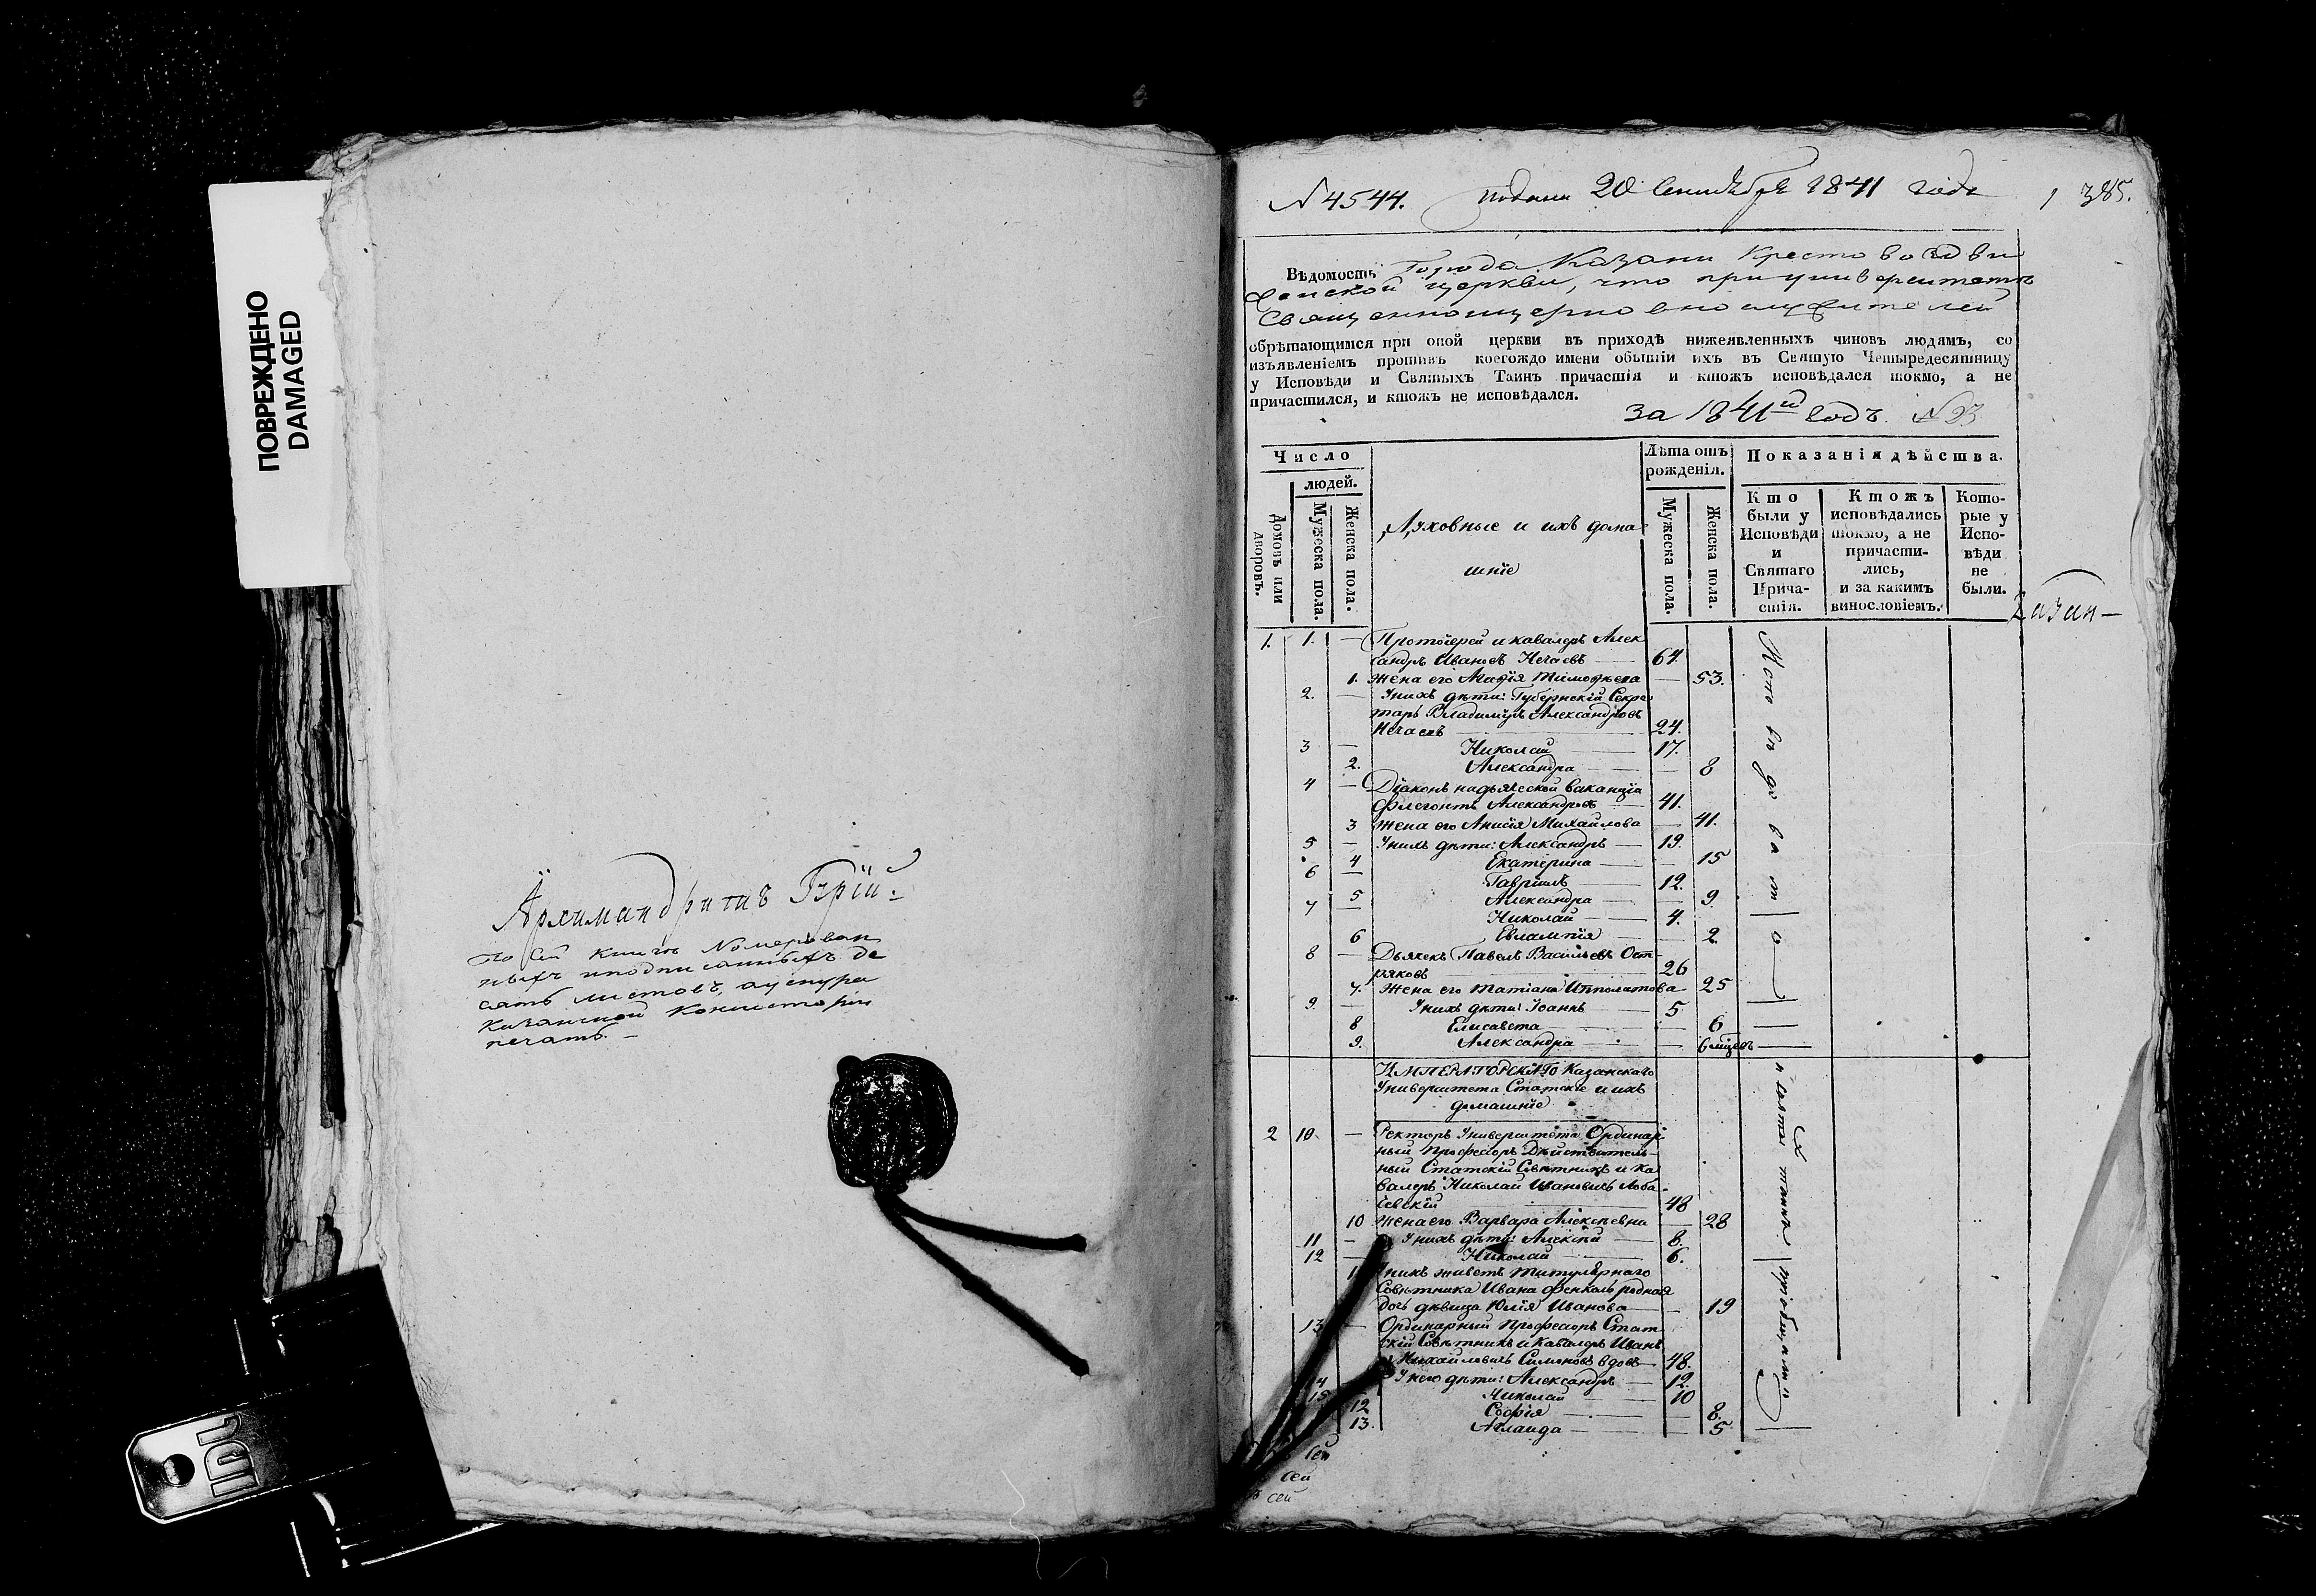 ПОВРЕЖДЕНО
DAMAGED
Архимандритъ Гурій
По сей книгѣ Номерован
ныхъ и подписанныхъ де
сять листовъ, а у снура
Казанской Консисторіи
печать.
N 4544. подана 20 Сентября 1841 года
1 385.
Вѣдомость Города Казани Крестовоздви
женской церкви, что при университетѣ
Священноцерковнослужителей
обрѣтающимся при оной церкви въ приходѣ нижеявленныхъ чиновъ людямъ, со
изъявленіемъ противъ коегождо имени обытіи ихъ въ Святую Четыредесятницу
у Исповѣди и Святыхъ Таинъ причастія и ктожъ исповѣдался токмо, а не
причастился, и ктожъ не исповѣдался.
за 1841й годъ. N 23
Число
людей.
Домовъ или дворовъ.
Мужеска пола.
Женска пола.
Духовные и ихъ дома
шніе
Лѣта отъ рожденія.
Мужеска пола.
Женска пола.
Показанія дѣйства.
Кто были у Исповѣди и Святаго Прича-стія.
Ктожъ исповѣдались токмо, а не причасти-лись, и за какимъ винословіемъ.
Кото-рые у Испо-вѣди не были.
Казан-
1. 1. — Протоіерей и кавалеръ Алек
сандръ Ивановъ Нечаевъ — 64.
1. Жена его Марія Тимофѣева — 53.
2. — У нихъ дѣти: Губернскій Секре
тарь Владиміръ Александровъ
Нечаевъ — 24.
3 — Николай — 17.
2. Александра — 8
4 — Діаконъ на дьяческой ваканціи
Флегонтъ Александровъ — 41.
3 Жена его Анисія Михайлова — 41.
5 — У нихъ дѣти: Александръ — 19.
4 Екатерина — 15
6 — Гавріилъ — 12.
5 Александра — 9.
7 — Николай — 4.
6 Евлампія — 2.
8 — Дьячекъ Павелъ Васильевъ Ост-
ряковъ — 26
7. Жена его Татіана Ипполитова — 25
9. — У нихъ дѣти: Іоаннъ — 5
8 Елисавета — 6
9. Александра — 6 мѣцевъ
Исповѣдоват
ИМПЕРАТОРСКАГО Казанскаго
Университета Статскіе и ихъ
домашніе
2 10. — Ректоръ Университета Ординар
ный Профессоръ Дѣйствитель-
ный Статскій Совѣтникъ и Ка
валеръ Николай Ивановичъ Лоба-
чевскій — 48
10 Жена его Варвара Алексѣевна — 28
11 — У нихъ дѣти: Алексѣй — 8.
12 — Николай — 6.
У нихъ живетъ титулярнаго
Совѣтника Ивана Фенколь родная
дочь дѣвица Юлія Иванова — 19
13 — Ординарный Профессоръ Стат
скій Совѣтникъ и Кавалеръ Иванъ
Михайловичъ Симоновъ вдовъ — 48.
У него дѣти: Александръ — 12.
15 Николай — 10
12 Софія — 8.
13. Аглаида — 5
и святыхъ таинъ
сей
сей
сей